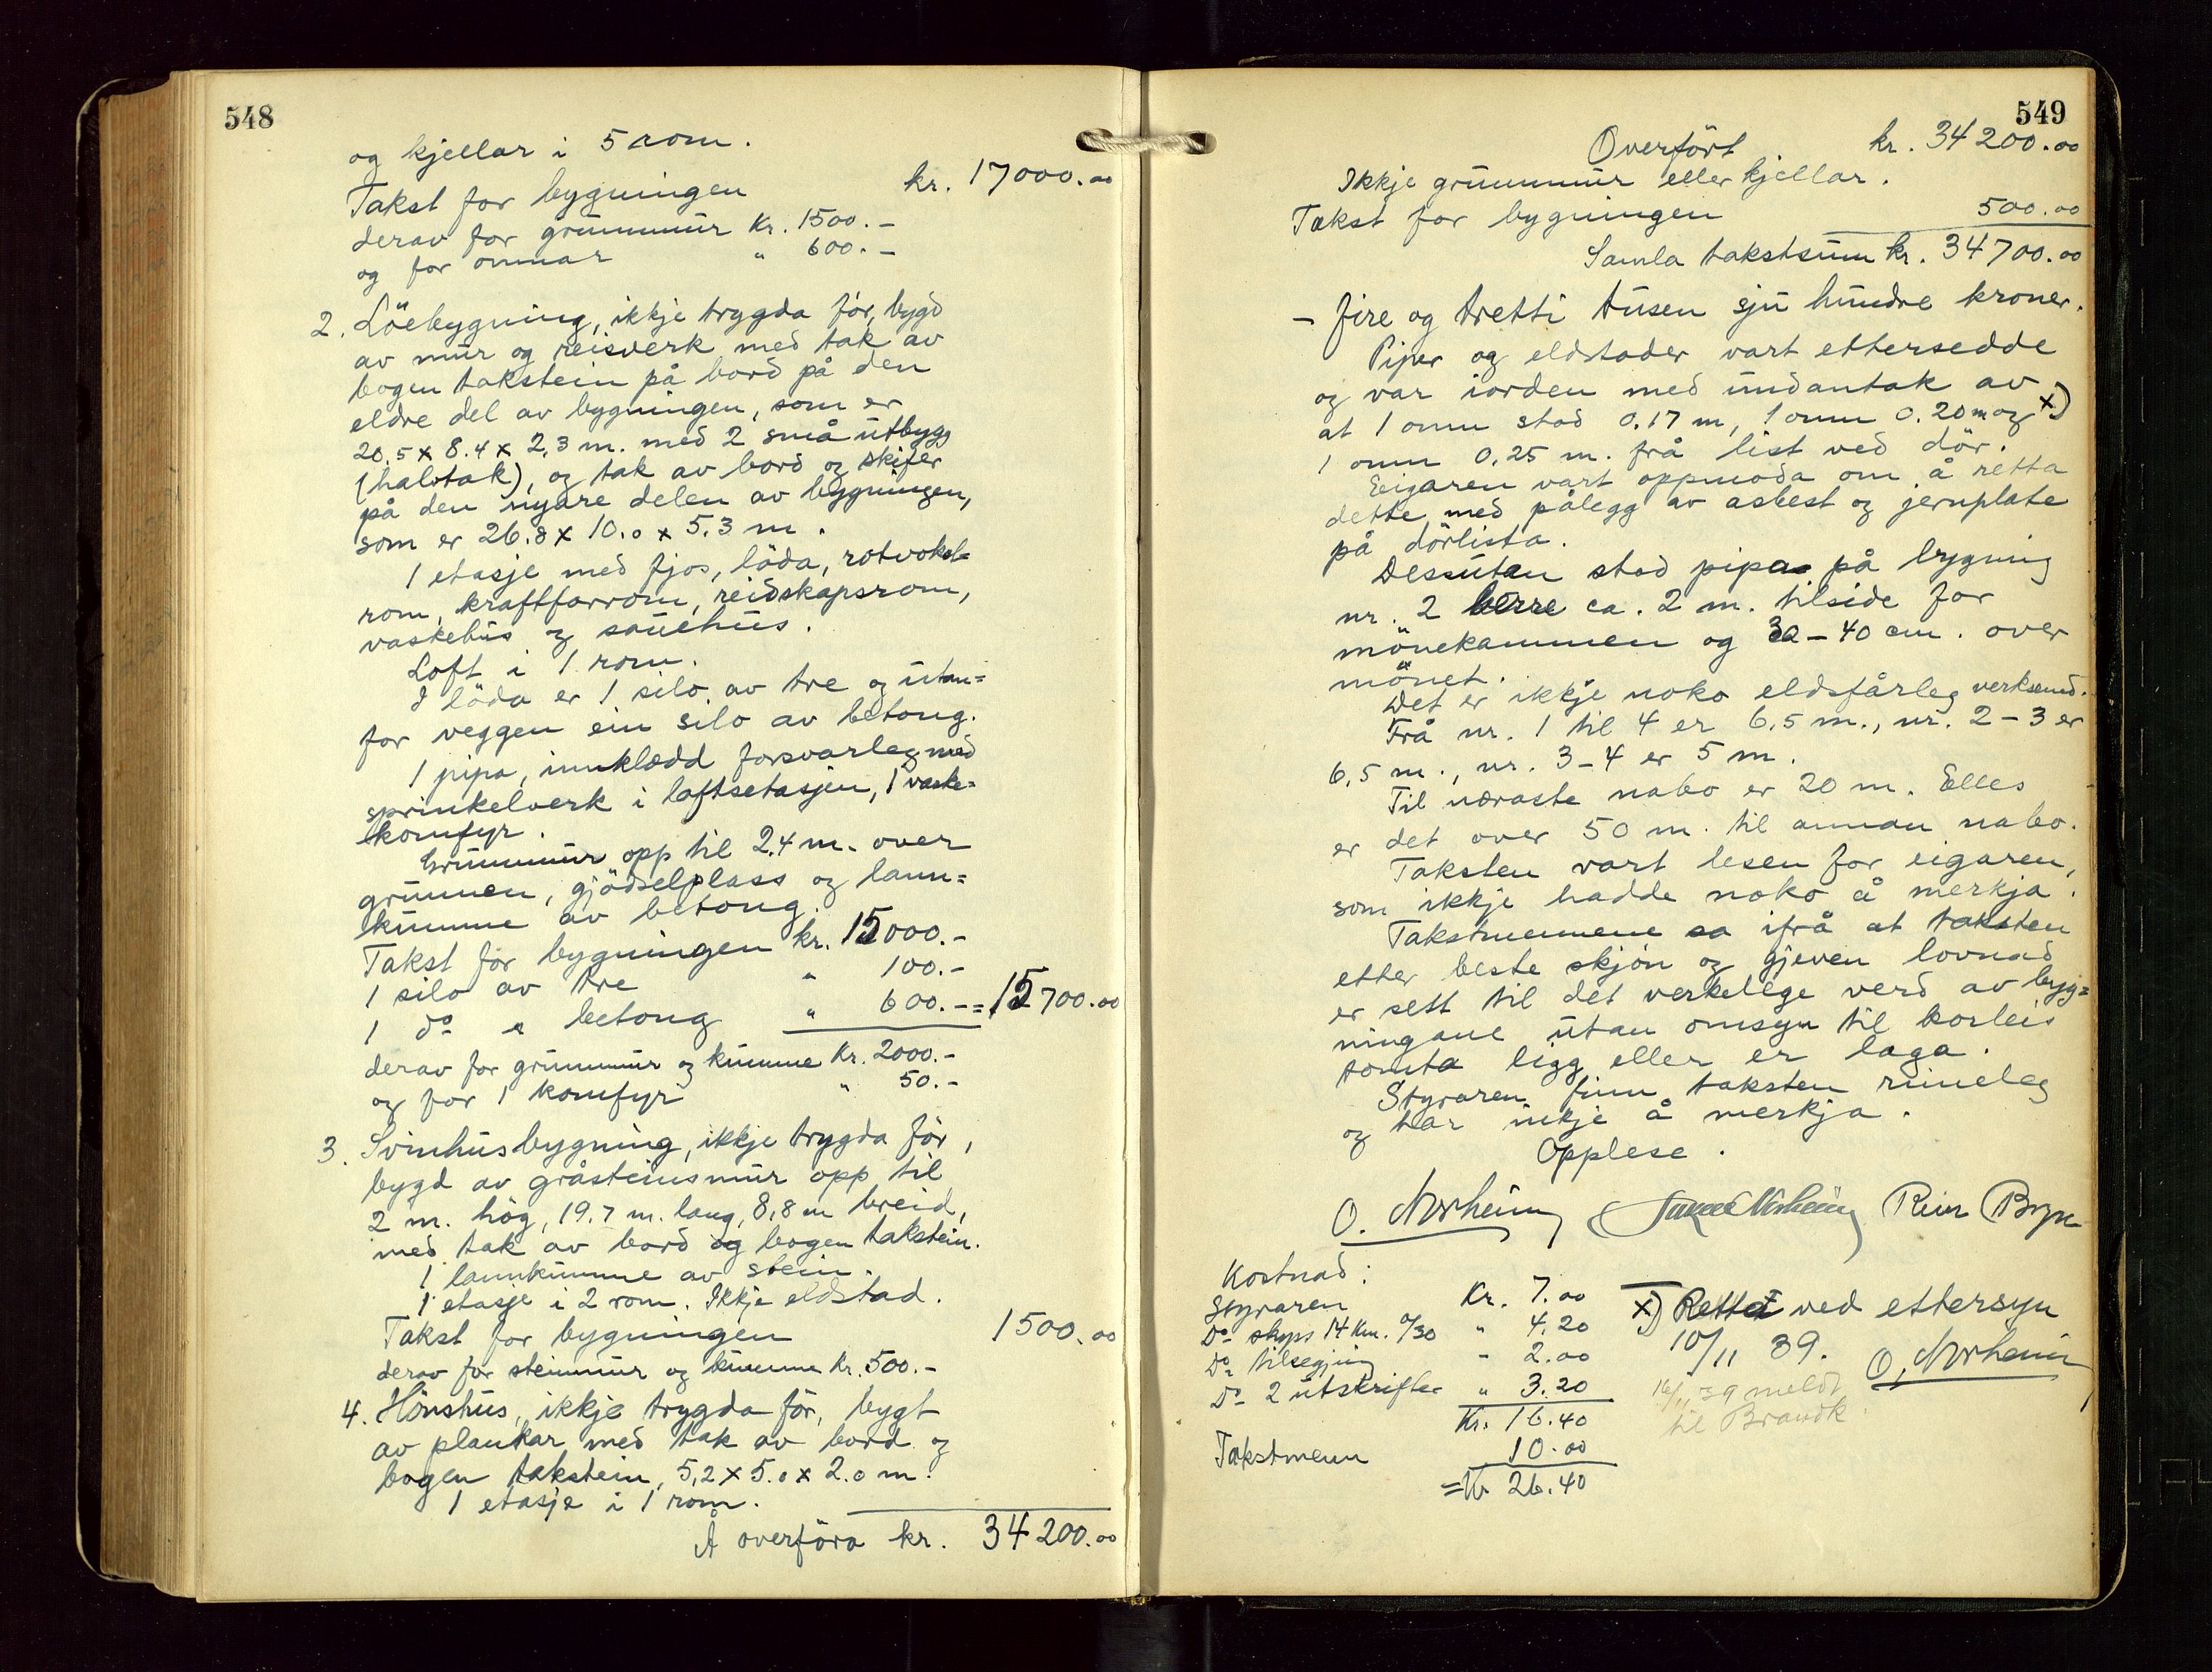 548
og kjellar i 5 rom.
Takst for bygningen kr. 17000.00
derav for grunnmur Kr. 1500.-
og for omnar " 600.-
2. Löebygning, ikkje trygda för, bygd
av mur og reisverk med tak av
bogen takstein på bord på den
eldre del av bygningen, som er
20.5 x 8.4 x 2,3 m. med 2 små utbygg
(halvtak), og tak av bord og skifer
på den nyare delen av bygningen,
som er 26.8 x 10.0 x 5.3 m.
1 etasje med fjos, löda, rotvokst=
rom, kraftforrom, reidskapsrom,
vaskehus og sauehus.
Loft i 1 rom.
I löda er 1 silo av tre og utan=
for veggen ein silo av betong.
1 pipa, innklædd forsvarleg med
sprinkelverk i loftsetasjen, 1 vaske=
komfyr.
Grunnmur opp til 2.4 m. over
grunnen, gjödselplass og lann=
kumme av betong.
Takst for bygningen kr. 15000.-
1 silo av tre " 100.-
1 do " betong " 600.- = 15700.00
derav for grunnmur og kumme Kr. 2000.-
og for 1 komfyr " 50.-
3. Svinhusbygning, ikkje trygda för,
bygd av gråsteinsmur opp til
2 m. hög, 19.7 m. lang, 8,8 m breid,
med tak av bord og bogen takstein.
1 lannkumme av stein.
1 etasje i 2 rom. Ikkje eldstad.
Takst for bygningen 1500.00
derav for steinmur og kumme Kr. 500.-
4. Hönshus, ikkje trygda för, bygt
av plankar med tak av bord og
bogen takstein, 5,2 x 5.0 x 2.0 m.
1 etasje i 1 rom.
Å overföra kr. 34200.00
549
Overfört kr. 34200.00
Ikkje grunnmur eller kjellar.
Takst for bygningen 500.00
Samla takstsum kr. 34700.00
- fire og tretti tusen sju hundre kroner.
Piper og eldstader vart ettersedde
og var iorden med undantak av
at 1 omn stod 0.17 m, 1 omn 0.20 m og x)
1 omn 0,25 m. frå list ved dör.
Eigaren vart oppmoda om å retta
dette med pålegg av asbest og jernplate
på dörlista.
Dessutan stod pipa på bygning
nr. 2 berre ca. 2 m. tilside for
mönekammen og 30-40 cm. over
mönet.
Det er ikkje noko eldsfårleg verksemd.
Frå nr. 1 til 4 er 6,5 m., nr. 2-3 er
6,5 m., nr. 3-4 er 5 m.
Til næraste nabo er 20 m. Elles
er det over 50 m. til annan nabo.
Taksten vart lesen for eigaren,
som ikkje hadde noko å merkja.
Takstmennene sa ifrå at taksten
etter beste skjön og gjeven lovnad
er sett til det verkelege verd av byg=
ningane utan omsyn til korleis
tomta ligg eller er laga.
Styraren finn taksten rimeleg
og har inkje å merkja.
Opplese.
O. Norheim
Kostnad:
Styraren Kr. 7.00
Do skyss 14 Km. a/30 " 4.20
Do tilsegjing " 2.00
Do 2 utskrifter " 3.20
Kr. 16.40
Takstmenn 10.00
= Kr 26.40
x) Rettet ved ettersyn
10/11 39. O. Norheim
16/11 39 meldt
til Brandk.